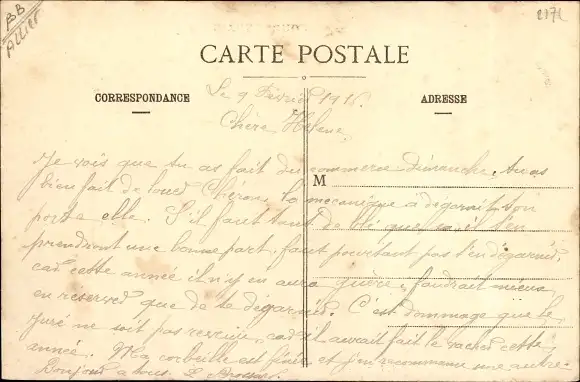 BB
Allier
2171
CARTE POSTALE
CORRESPONDANCE
ADRESSE
M
Le 9 Février 1916.
Chère Hélène,
Je vois que tu as fait du commerce Dimanche. Tu as
bien fait de louer la mécanique à dégarnir ton
porte elle. S'il faut tant de blé que ça, il t'en
prendront une bonne part, faut pourtant pas t'en dégarnir,
car cette année il n'y en aura guère, faudrait mieux
en réserver que de te dégarnir. C'est dommage que le
Juré ne soit pas revenu, car il aurait fait le vacher cette
année. Ma corbeille est finie, et j'en recommence une autre.
Bonjour à tous. L.